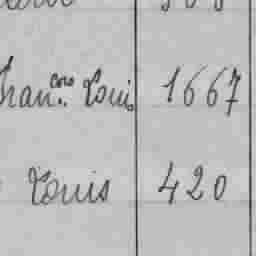 Fran.cois Louis 1667
Louis 420